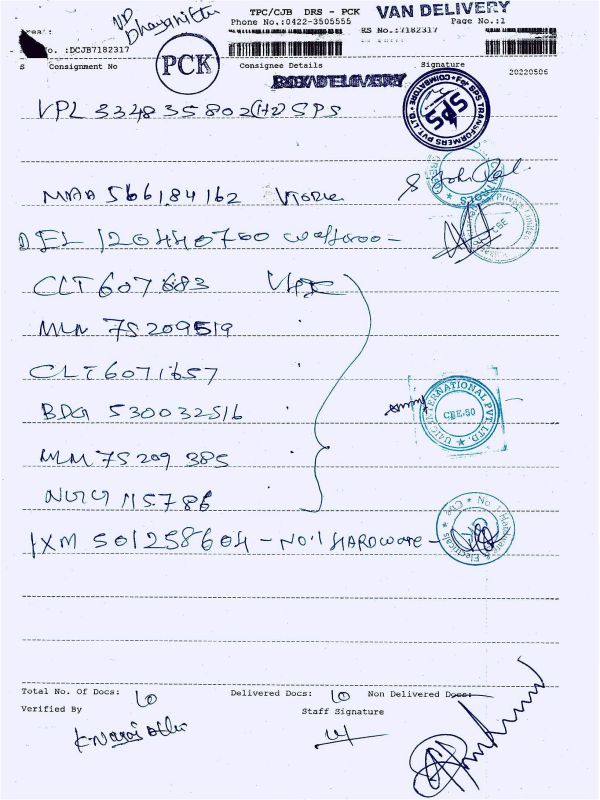 TPC/CJB DRS - PCK VAN DELIVERY
Phone No.:0422-3505555 Page No.:1
Area: RS No.:7182317
No. :DCJB7182317
PCK
S Consignment No Consignee Details Signature
BOX/DELIVERY 20220506
VPL 334835802 (H2) SPS
For SPS TRANSFORMERS PVT LTD COIMBATORE
SPS
MAA 566184162
S John
DEL 120440700
CLT 607683
MLM 75209519
CLT 6071657
BDQ 530032516
U4IC INTERNATIONAL PVT. LTD.
CBE-50
MLM 75209385
115786
IXM 501258604 - NO.1 HARDWARE -
No. 1 Hardware & Electricals CBE
Total No. Of Docs: 10 Delivered Docs: 10 Non Delivered Docs:
Verified By Staff Signature